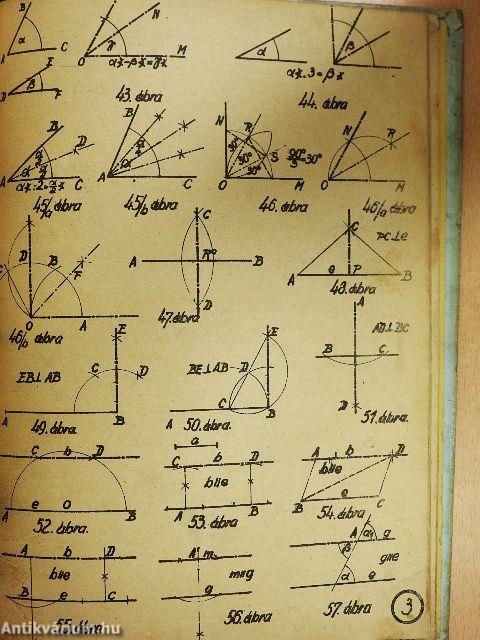 B
A α C
E
D β F
N
γ
O M
α∢-β∢=γ∢
43. ábra
α
β
α∢·3=β∢
44. ábra
B
D
A C
α∢:2=α/2∢
45/a ábra
B
A C
45/b ábra
N R
30°
30°
30° S
O M
90°/3=30°
46. ábra
N R
O M
46/a ábra
C
D B
F
O A
46/b ábra
C
A B
D
47. ábra
C
PC⊥e
A e P B
48. ábra
E
EB⊥AB
C D
A B
49. ábra
E
BE⊥AB
D
C
A B
50. ábra
A
AD⊥BC
B C
D
51. ábra
C b D
A e O B
52. ábra.
a
C b D
b∥e
A B
53. ábra
A b D
b∥e
B e C
54. ábra
A b D
b∥e
B e C
55. ábra
A m
m∥g
g
56. ábra
A α₁ g
β
g∥e
α e
57. ábra
3
Antikvarium.hu